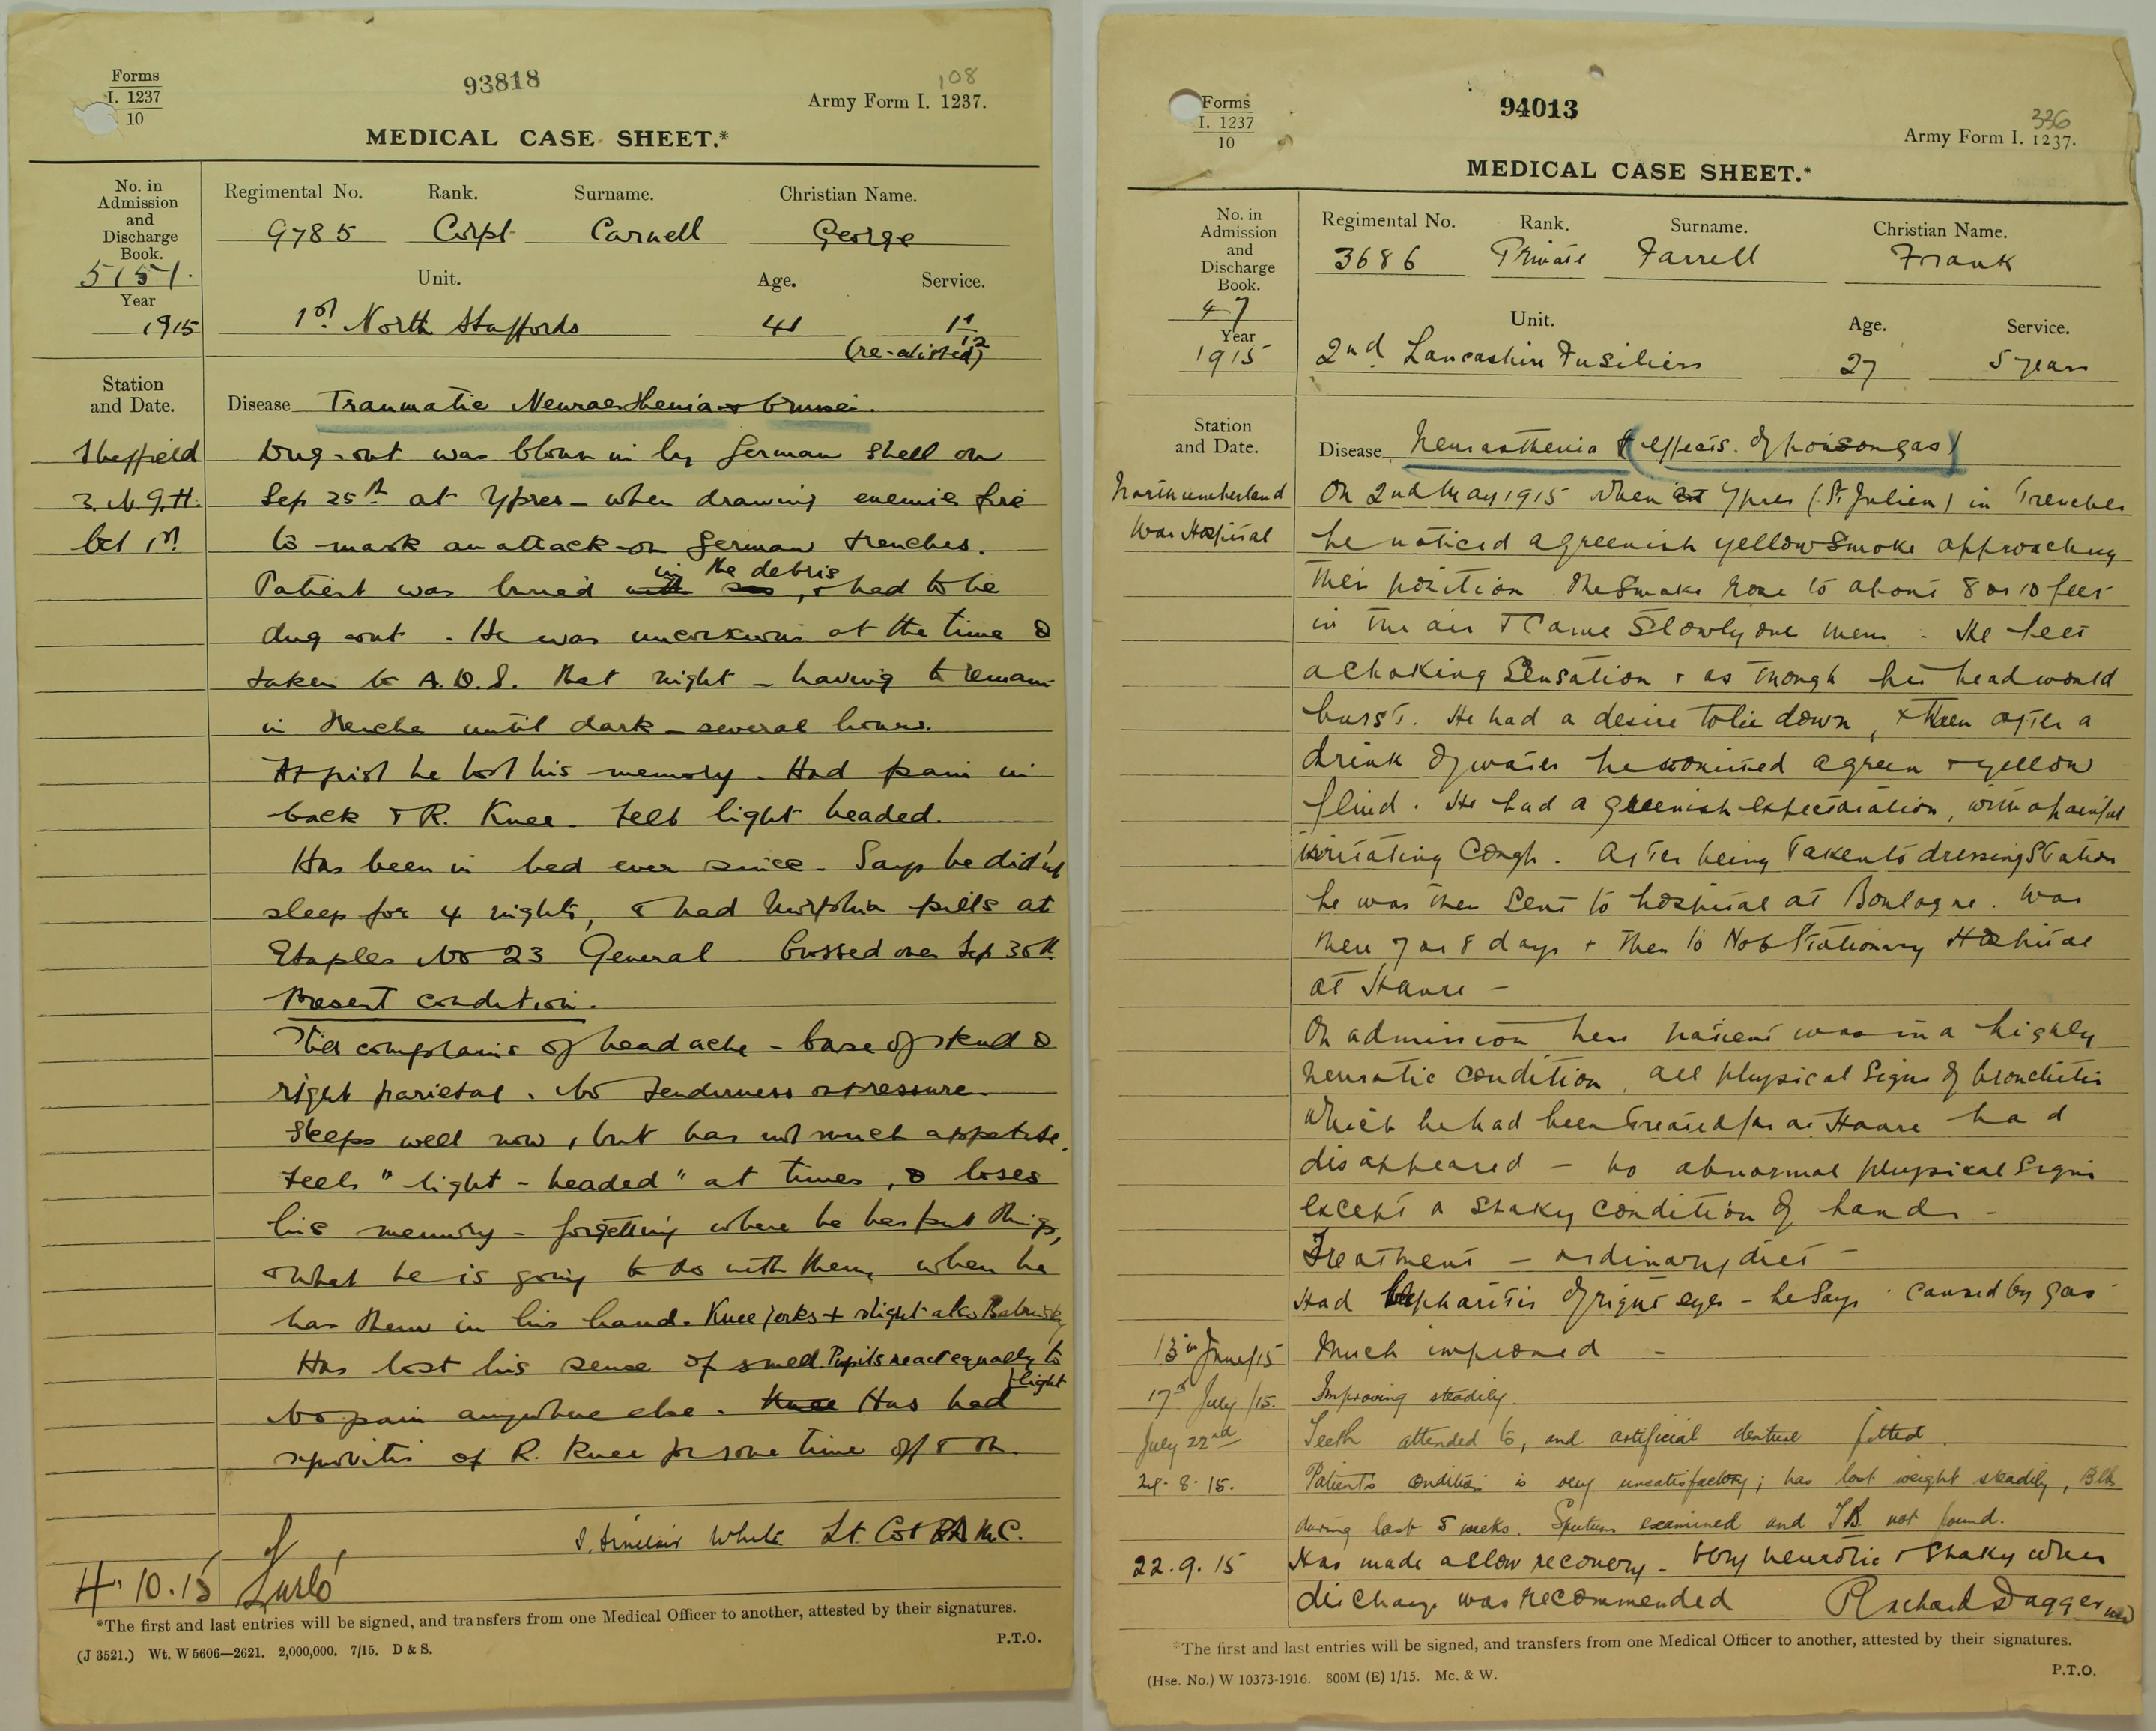 Forms
I. 1237
10
93818
108
Army Form I. 1237.
MEDICAL CASE SHEET.*
No. in
Admission
and
Discharge
Book.
5151.
Year
1915
Regimental No. Rank. Surname. Christian Name.
9785 Corpl Carnell George
Unit. Age. Service.
1st North Staffords 41 1 1/12
(re-enlisted)
Station
and Date.
Disease Traumatic Neurasthenia
Sheffield
3. N. G. H.
Oct 1st
Dug-out was blown in by German shell on
Sep 25th at Ypres - when drawing enemie fire
to mask an attack on German trenches.
Patient was buried in the debris, & had to be
dug out. He was unconscious at the time &
taken to A.D.S. that night - having to remain
in trenche until dark - several hours.
At first he lost his memory. Had pain in
back & R. Knee. Feels light headed.
Has been in bed ever since. Says he did'nt
sleep for 4 nights, & had morphia pills at
Etaples No 23 General. Crossed over Sep 30th
Present condition.
Still complains of headache - base of skull &
right parietal. No tenderness on pressure
Sleeps well now, but has not much appetite.
Feels "light-headed" at times, & loses
his memory - forgetting where he has put things,
& what he is going to do with them, when he
has them in his hand. Knee jerks + slight also Babinsky
Has lost his sense of smell. Pupils react equally to light
No pain anywhere else. Knee Has had
synovitis of R. Knee for some time off & on.
S. Sinclair White Lt. Col R.A.M.C.
4.10.15 Furlo'
*The first and last entries will be signed, and transfers from one Medical Officer to another, attested by their signatures.
P.T.O.
(J 3521.) Wt. W 5606—2621. 2,000,000. 7/15. D & S.
Forms
I. 1237
10
94013
336
Army Form I. 1237.
MEDICAL CASE SHEET.*
No. in
Admission
and
Discharge
Book.
47
Year
1915
Regimental No. Rank. Surname. Christian Name.
3686 Private Farrell Frank
Unit. Age. Service.
2nd Lancashire Fusiliers 27 5 years
Station
and Date.
Disease Neurasthenia (effects of poison gas)
Northumberland
War Hospital
On 2nd May 1915 when at Ypres (St Julien) in Trenches
he noticed a greenish yellow smoke approaching
their position. The smoke rose to about 8 or 10 feet
in the air & came slowly over them. He felt
a choking sensation & as though his head would
burst. He had a desire to lie down, & then after a
drink of water he vomited a green & yellow
fluid. He had a greenish expectoration, with a painful
irritating cough. After being taken to dressing station
he was then sent to hospital at Boulogne. Was
there 7 or 8 days & then to No 6 Stationary Hospital
at Havre -
On admission here patient was in a highly
neurotic condition, all physical signs of bronchitis
which he had been treated for at Havre had
disappeared - no abnormal physical signs
except a shaky condition of hands -
Treatment - ordinary diet -
Had blepharitis of right eye - he says caused by gas
13th June/15 Much improved -
17th July/15. Improving steadily.
July 22nd Teeth attended to, and artificial denture fitted.
24.8.15. Patient's condition is very unsatisfactory; has lost weight steadily, 8lbs
during last 5 weeks. Sputum examined and T.B. not found.
22.9.15 Has made a slow recovery - Very neurotic & shaky when
discharge was recommended Richard Dagger
*The first and last entries will be signed, and transfers from one Medical Officer to another, attested by their signatures.
P.T.O.
(Hse. No.) W 10373-1916. 800M (E) 1/15. Mc. & W.